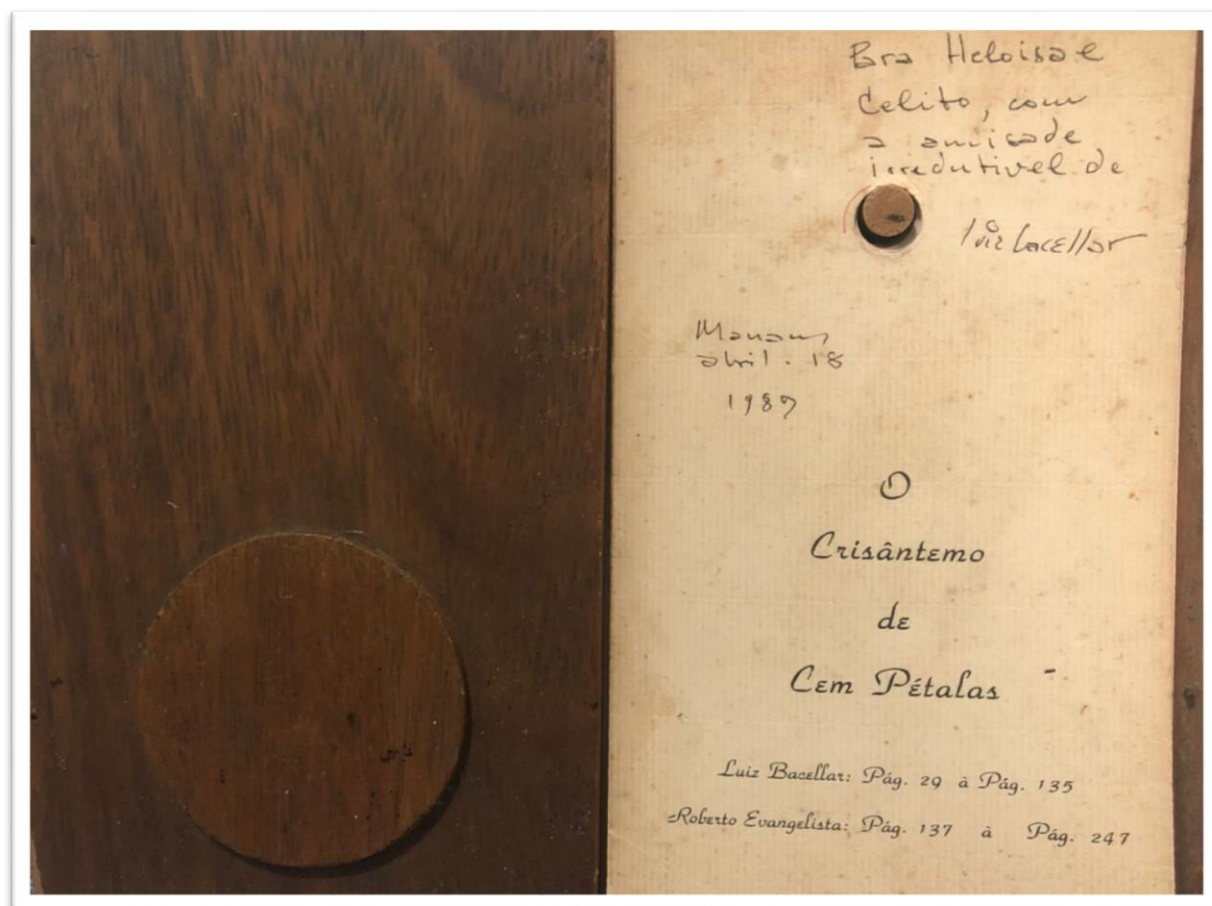 Pra Heloisa e
Celito, com
a amizade
irredutivel de
Luiz Bacellar
Manaus
abril . 18
1987
O
Crisântemo
de
Cem Pétalas
Luiz Bacellar: Pág. 29 à Pág. 135
Roberto Evangelista: Pág. 137 à Pág. 247